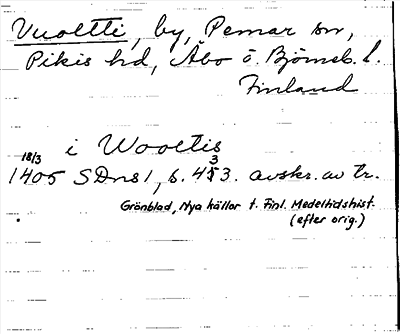 Vuoltti, by, Pemar sn,
Pikis hd, Åbo o. Björneb. l.
Finland
i Wooltis
18/3
1405 SDns 1, s. 433. avskr. av tr.
Grönblad, Nya källor t. Finl. Medeltidshist.
(efter orig.)